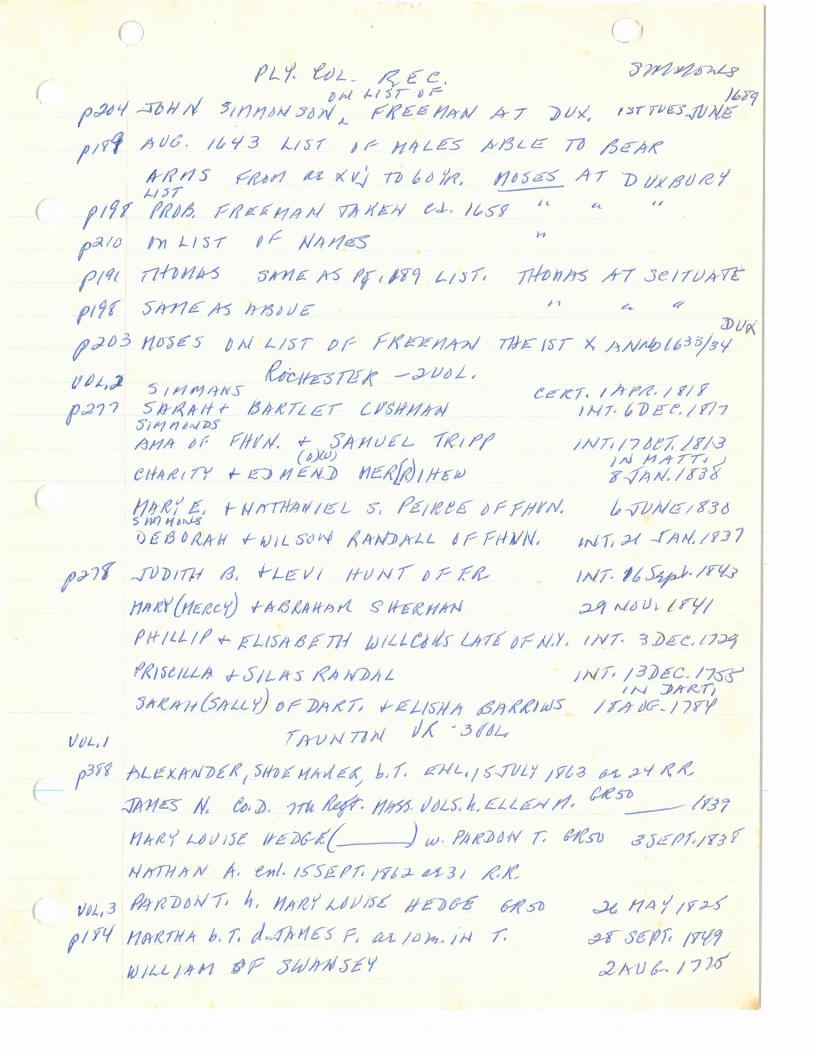 PLY. COL. REC.
SIMMONS
p204 JOHN SIMMONSON, ON LIST OF FREEMAN AT DUX. 1ST TUES. JUNE 1689
p189 AUG. 1643 LIST OF MALES ABLE TO BEAR
ARMS FROM ae XVj TO 60 YR. MOSES AT DUXBURY
p198 PROB. LIST FREEMAN TAKEN Ca. 1658 " " "
p210 ON LIST OF NAMES "
p191 THOMAS SAME AS Pg. 189 LIST. THOMAS AT SCITUATE
p198 SAME AS ABOVE " " "
p203 MOSES ON LIST OF FREEMAN THE 1ST X ANNO 1633/34 DUX
VOL. 2 ROCHESTER - 2 VOL.
SIMMANS CERT. 1 APR. 1818
p277 SARAH + BARTLET CUSHMAN INT. 6 DEC. 1817
SIMMONDS
AMA OF FHVN. + SAMUEL TRIPP INT. 17 OCT. 1813
(O)(W) IN MATT.,
CHARITY + EDMEND MER[R]IHEW 8 JAN. 1838
MARY E. + NATHANIEL S. PEIRCE OF FHVN. 6 JUNE 1830
SIMMONS
DEBORAH + WILSON RANDALL OF FHVN. INT. 21 JAN. 1837
p278 JUDITH B. + LEVI HUNT OF F.R INT. 16 Sept. 1843
MARY (MERCY) + ABRAHAM SHERMAN 29 NOV. 1841
PHILLIP + ELISABETH WILLCOKS LATE OF N.Y. INT. 3 DEC. 1729
PRISCILLA + SILAS RANDAL INT. 13 DEC. 1755
IN DART,
SARAH (SALLY) OF DART. + ELISHA BARROWS 18 AUG. 1784
VOL. 1 TAUNTON VR - 3 VOL
p388 ALEXANDER, SHOEMAKER, b. T. ENL. 15 JULY 1863 ae 24 R.R.
JAMES N. CO. D. 7th Regt. MASS. VOLS. h. ELLEN M. GR50 ___ 1839
MARY LOUISE HEDGE (______) w. PARDON T. GR50 3 SEPT. 1838
NATHAN A. enl. 15 SEPT. 1862 ae 31 R.R.
VOL. 3 PARDON T. h. MARY LOUISE HEDGE GR50 26 MAY 1825
p184 MARTHA b. T. d. JAMES F. ae 10m. IN T. 28 SEPT. 1849
WILLIAM OF SWANSEY 2 AUG. 1775